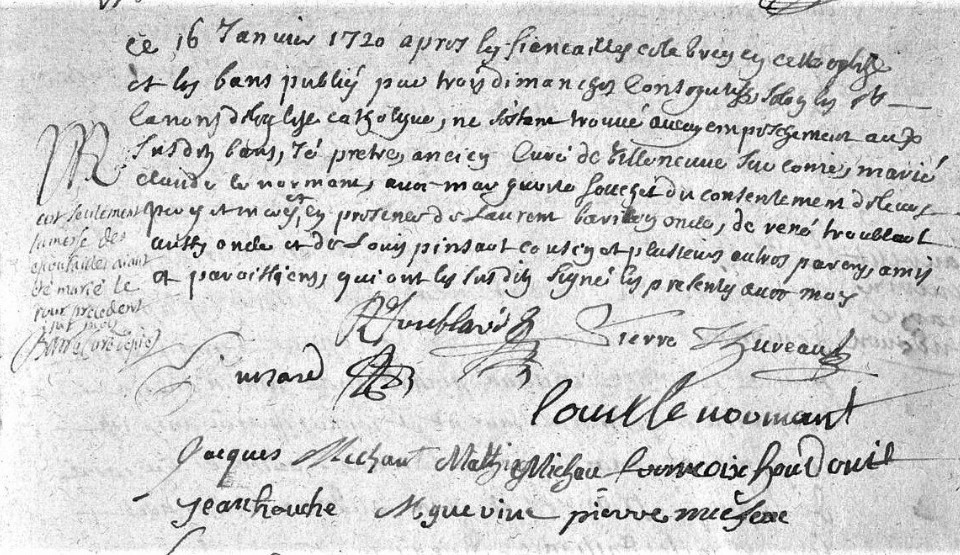 ce 16 Janvier 1720 apres les fiancailles celebrees en cette eglise
et les bans publiés par trois dimanches consecutifs selon les Sts
canons de leglise catholique, ne sestant trouvé aucun empeschement aux
susdits bans, Jé pretre, ancien curé de villeneuve marié
claude le normant, avec marguerite du consentement de leurs
peres et meres, et en presence de Laurent oncle, de rené troublart
aussy oncle et de Louis pinsart cousin et plusieurs autres parens, amis
et paroissiens, qui ont les susdits signé les presentes avec moy
est seulement
la messe des
epousailles aiant
été marié le
jour precedent
par moy
RTroublard
Pierre Hureau
Pinsard
Louis le normant
Jacques Michau Mathieu Michau francoix houdouil
Jean houche M guerine pierre micheau